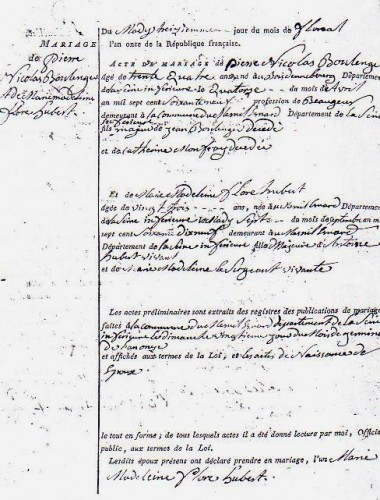 Du Mady treizieme jour du mois de floreal
MARIAGE
l'an onze de la République française.
de Pierre
Nicolas Boulenger
Marie Madeleine
flore hubert.
ACTE DE MARIAGE de Pierre Nicolas Boulenger
âgé de trente Quatre ans, né au Département
de la Seine inferieure le Quatorze du mois d'avril
an mil sept cent Soixante neuf profession de
demeurant à la commune du Mesnil Département de la Seine
inferieure
fils majeur de jean Boulenger décédé
et de catherine
Et de Marie Madeleine flore hubert
âgée de vingt trois ans, née au Mesnil Département
de la Seine inferieure le du mois de Septembre an mil
sept cent demeurant au Mesnil
Département de la Seine inferieure fille Majeure d'Antoine
hubert vivant
et de Marie Madeleine le Sergeant vivante
Les actes préliminaires sont extraits des registres des publications de mariage
faites à la commune du Mesnil département de la Seine
inferieure le dimanche vingtieme jour du Mois de germinal
et affichés aux termes de la Loi; et les actes de Naissance de
Epoux
le tout en forme; de tous lesquels actes il a été donné lecture par moi, Officier
public, aux termes de la Loi.
Lesdits époux présens ont déclaré prendre en mariage, l'un Marie
Madeleine flore hubert.